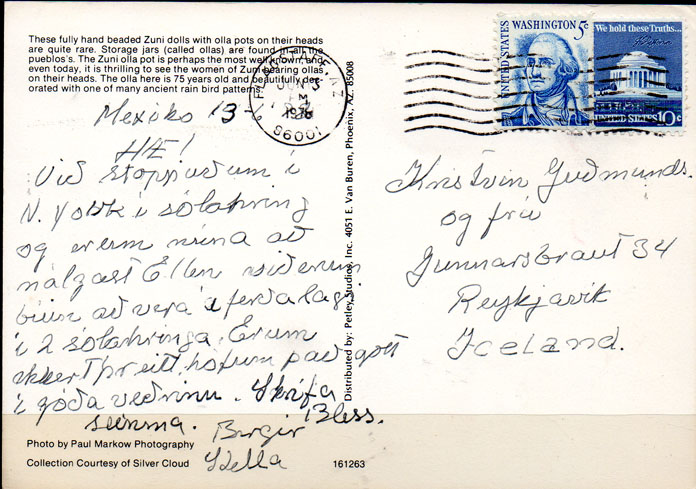 These fully hand beaded Zuni dolls with olla pots on their heads
are quite rare. Storage jars (called ollas) are found in all the
pueblos's. The Zuni olla pot is perhaps the most well known, and
even today, it is thrilling to see the women of Zuni bearing ollas
on their heads. The olla here is 75 years old and beautifully dec-
orated with one of many ancient rain bird patterns.
Mexiko 13-6
HÆ!
Við stoppuðum í
N. York í sólahring
og erum núna að
nálgast Ellen við erum
búin að vera á ferðalagi
í 2 sólahringa. Erum
ekkert þreitt, höfum það gott
í góða veðrinu. Skrifa
seinna. Bless.
Birgir
Stella
Photo by Paul Markow Photography
Collection Courtesy of Silver Cloud
161263
Distributed by: Petley Studios, Inc. 4051 E. Van Buren, Phoenix, AZ. 85008
AZ
JUN
86001
UNITED STATES
WASHINGTON 5c
We hold these Truths...
UNITED STATES 10c
Kristvin Guðmunds.
og frú
Gunnarsbraut 34
Reykjavik
Iceland.